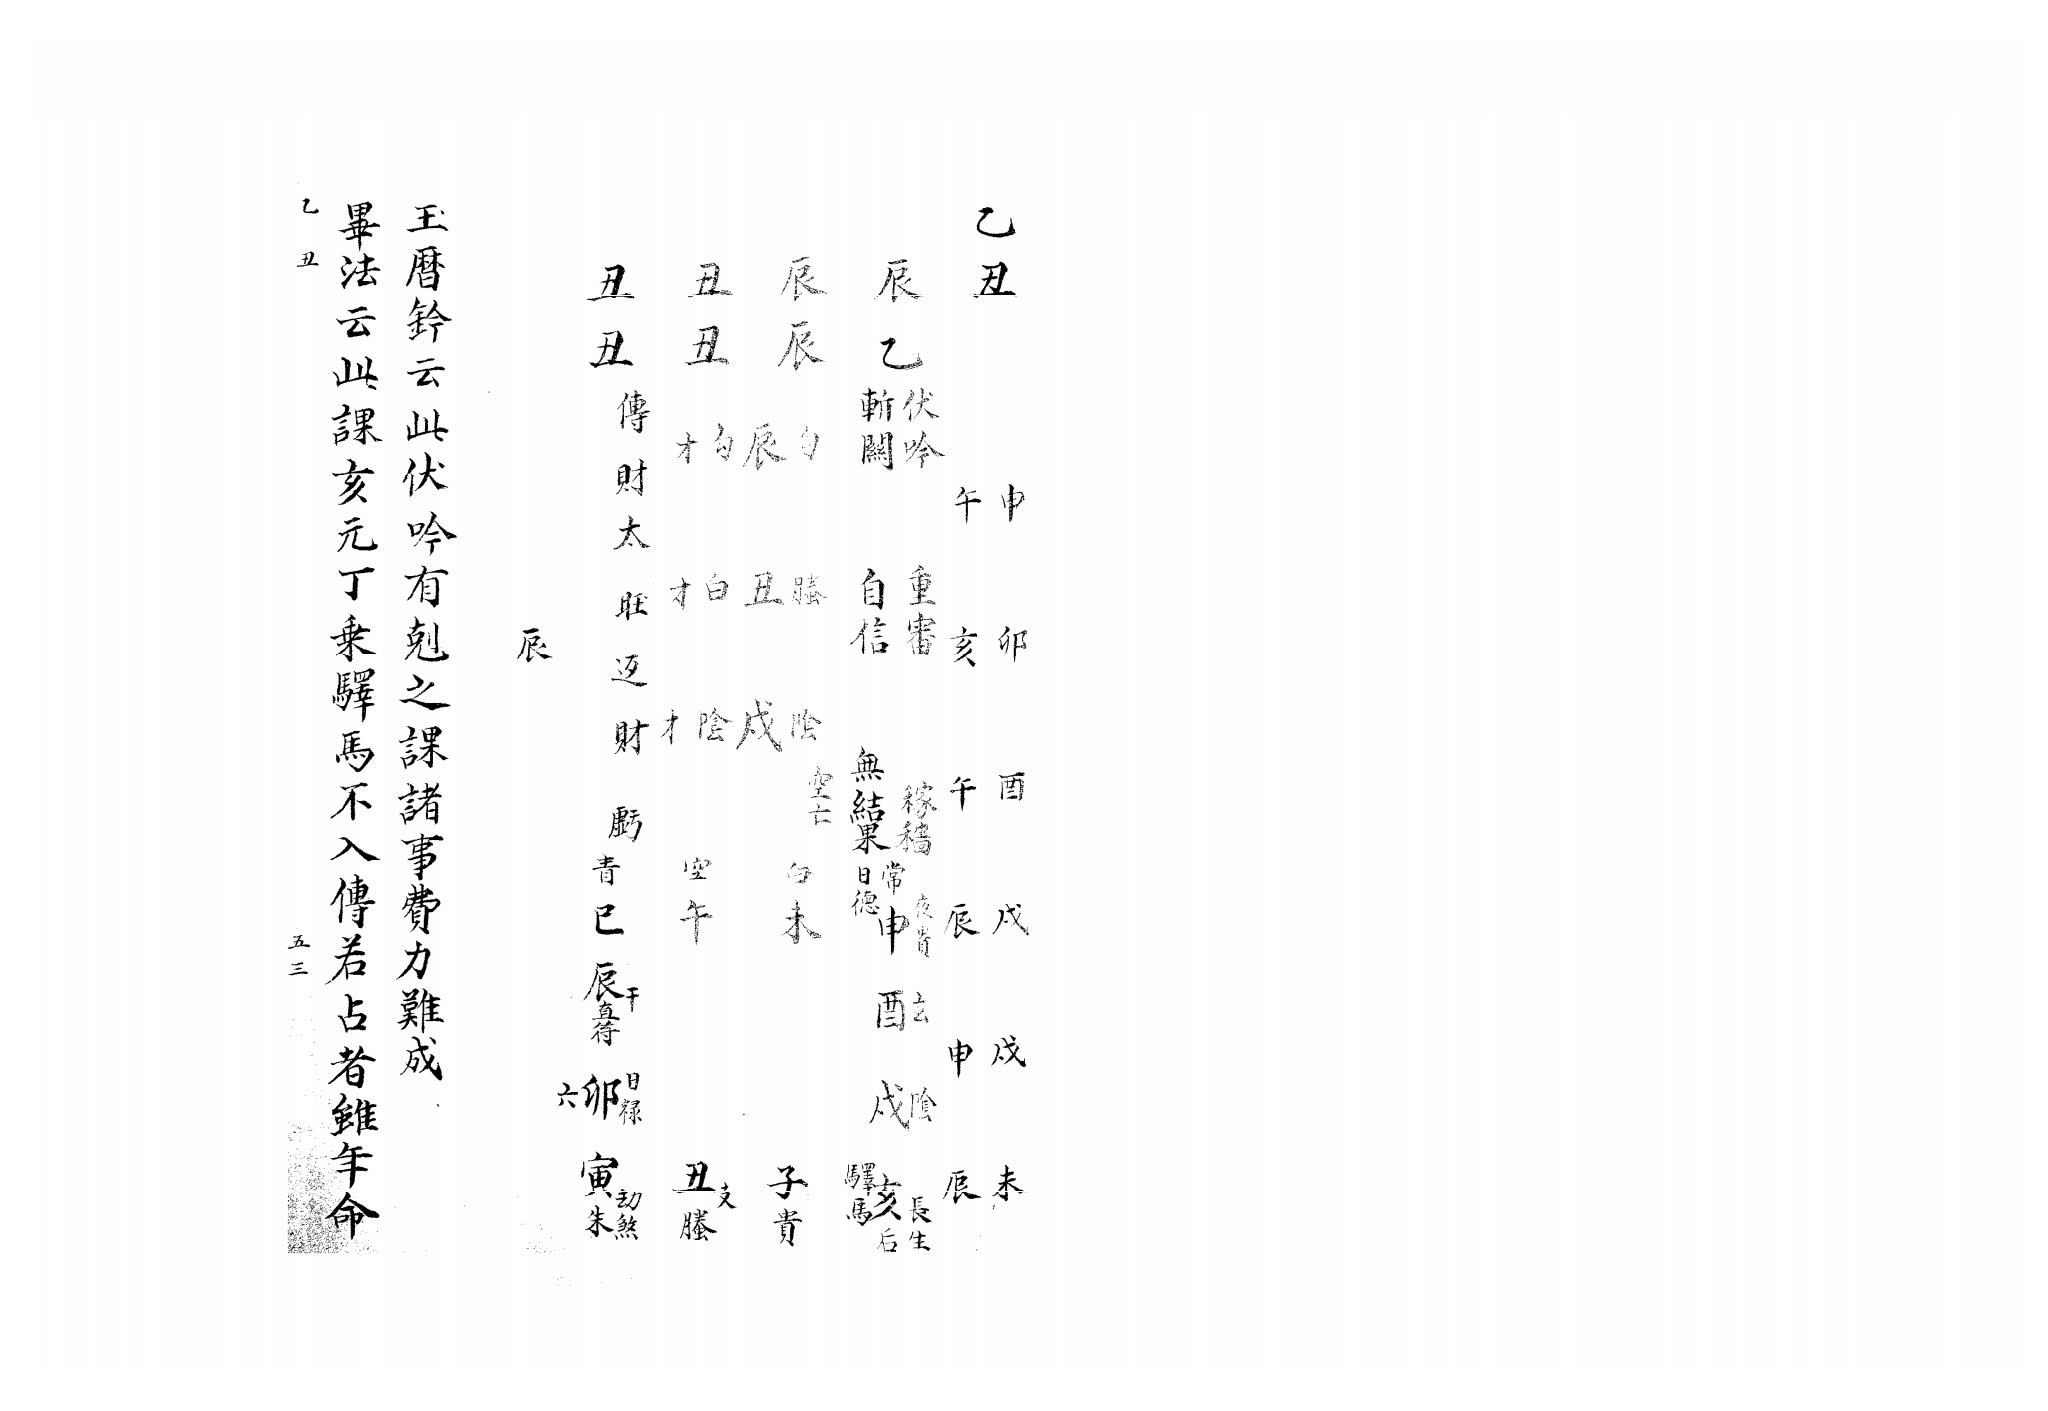 乙丑
申 卯 酉 戌 戌 未
午 亥 午 辰 申 辰
辰乙
辰辰
丑丑
丑丑
伏吟 重審 稼穡
斬關 自信 無結果
勾 螣 陰
辰 丑 戌 空亡
勾 白 陰
才 才 才
傳財太旺迈財虧
常 日德 申 夜貴
酉 玄
戌 陰
驛馬 亥 長生 后
白 未
子 貴
空 午
丑 支 螣
青 巳
辰 干 直符
六 卯 日禄
寅 劫煞 朱
辰
玉曆鈐云此伏吟有剋之課諸事費力難成
畢法云此課亥元丁乘驛馬不入傳若占者雖年命
乙丑
五三